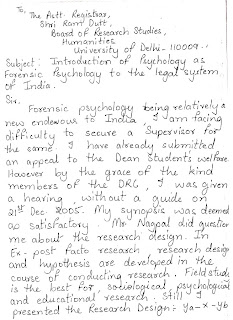 To,
The Astt. Registrar,
Shri Ram Dutt,
Board of Research Studies,
Humanities
University of Delhi - 110007.
Subject: Introduction of Psychology as
Forensic Psychology to the legal system
of India.
Sir,
Forensic psychology being relatively a
new endevour to India, I am facing
difficulty to secure a Supervisor for
the same. I have already submitted
an appeal to the Dean Student's welfare.
However by the grace of the kind
members of the DRC, I was given
a hearing, without a guide on
21st Dec. 2005. My synopsis was deemed
as satisfactory. Mr. Nagpal did question
me about the research design. In
Ex-post facto research research design
and hypothesis are developed in the
course of conducting research. Field study
is the best for, sociological, psychological
and educational research. Still I
presented the Research Design: ya-x-yb